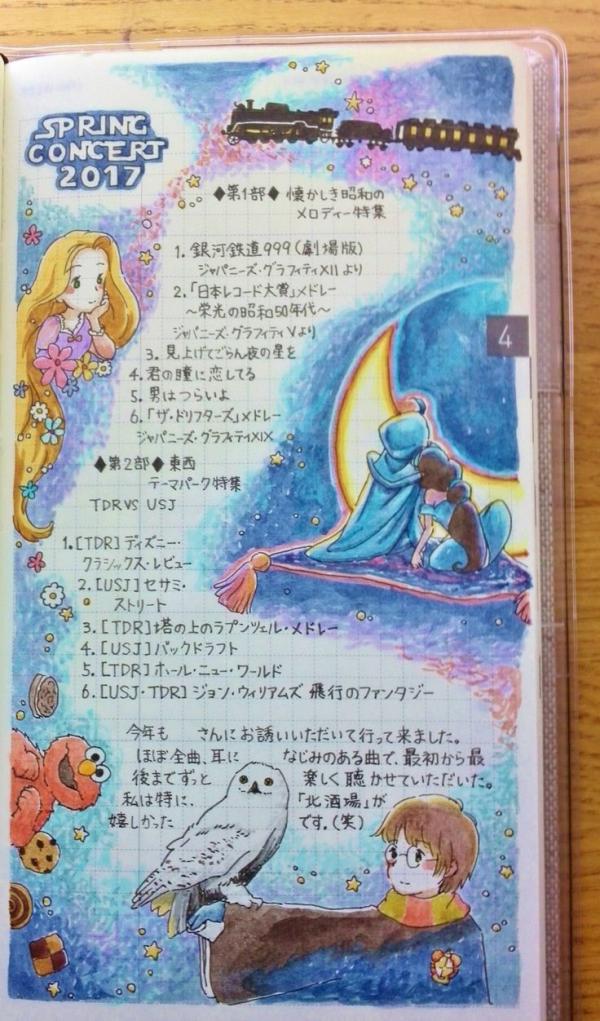 SPRING
CONCERT
2017
◆第1部◆ 懐かしき昭和の
メロディー特集
1. 銀河鉄道999(劇場版)
ジャパニーズ・グラフィティXIIより
2.「日本レコード大賞」メドレー
〜栄光の昭和50年代〜
ジャパニーズ・グラフィティVより
3. 見上げてごらん夜の星を
4. 君の瞳に恋してる
5. 男はつらいよ
6.「ザ・ドリフターズ」メドレー
ジャパニーズ・グラフィティXIX
◆第2部◆ 東西
テーマパーク特集
TDR VS USJ
1.[TDR]ディズニー・
クラシックス・レビュー
2.[USJ]セサミ・
ストリート
3.[TDR]塔の上のラプンツェル・メドレー
4.[USJ]バックドラフト
5.[TDR]ホール・ニュー・ワールド
6.[USJ・TDR]ジョン・ウィリアムズ 飛行のファンタジー
今年も さんにお誘いいただいて行って来ました。
ほぼ全曲、耳に なじみのある曲で、最初から最
後までずっと 楽しく聴かせていただいた。
私は特に、 「北酒場」が
嬉しかった です。(笑)
4